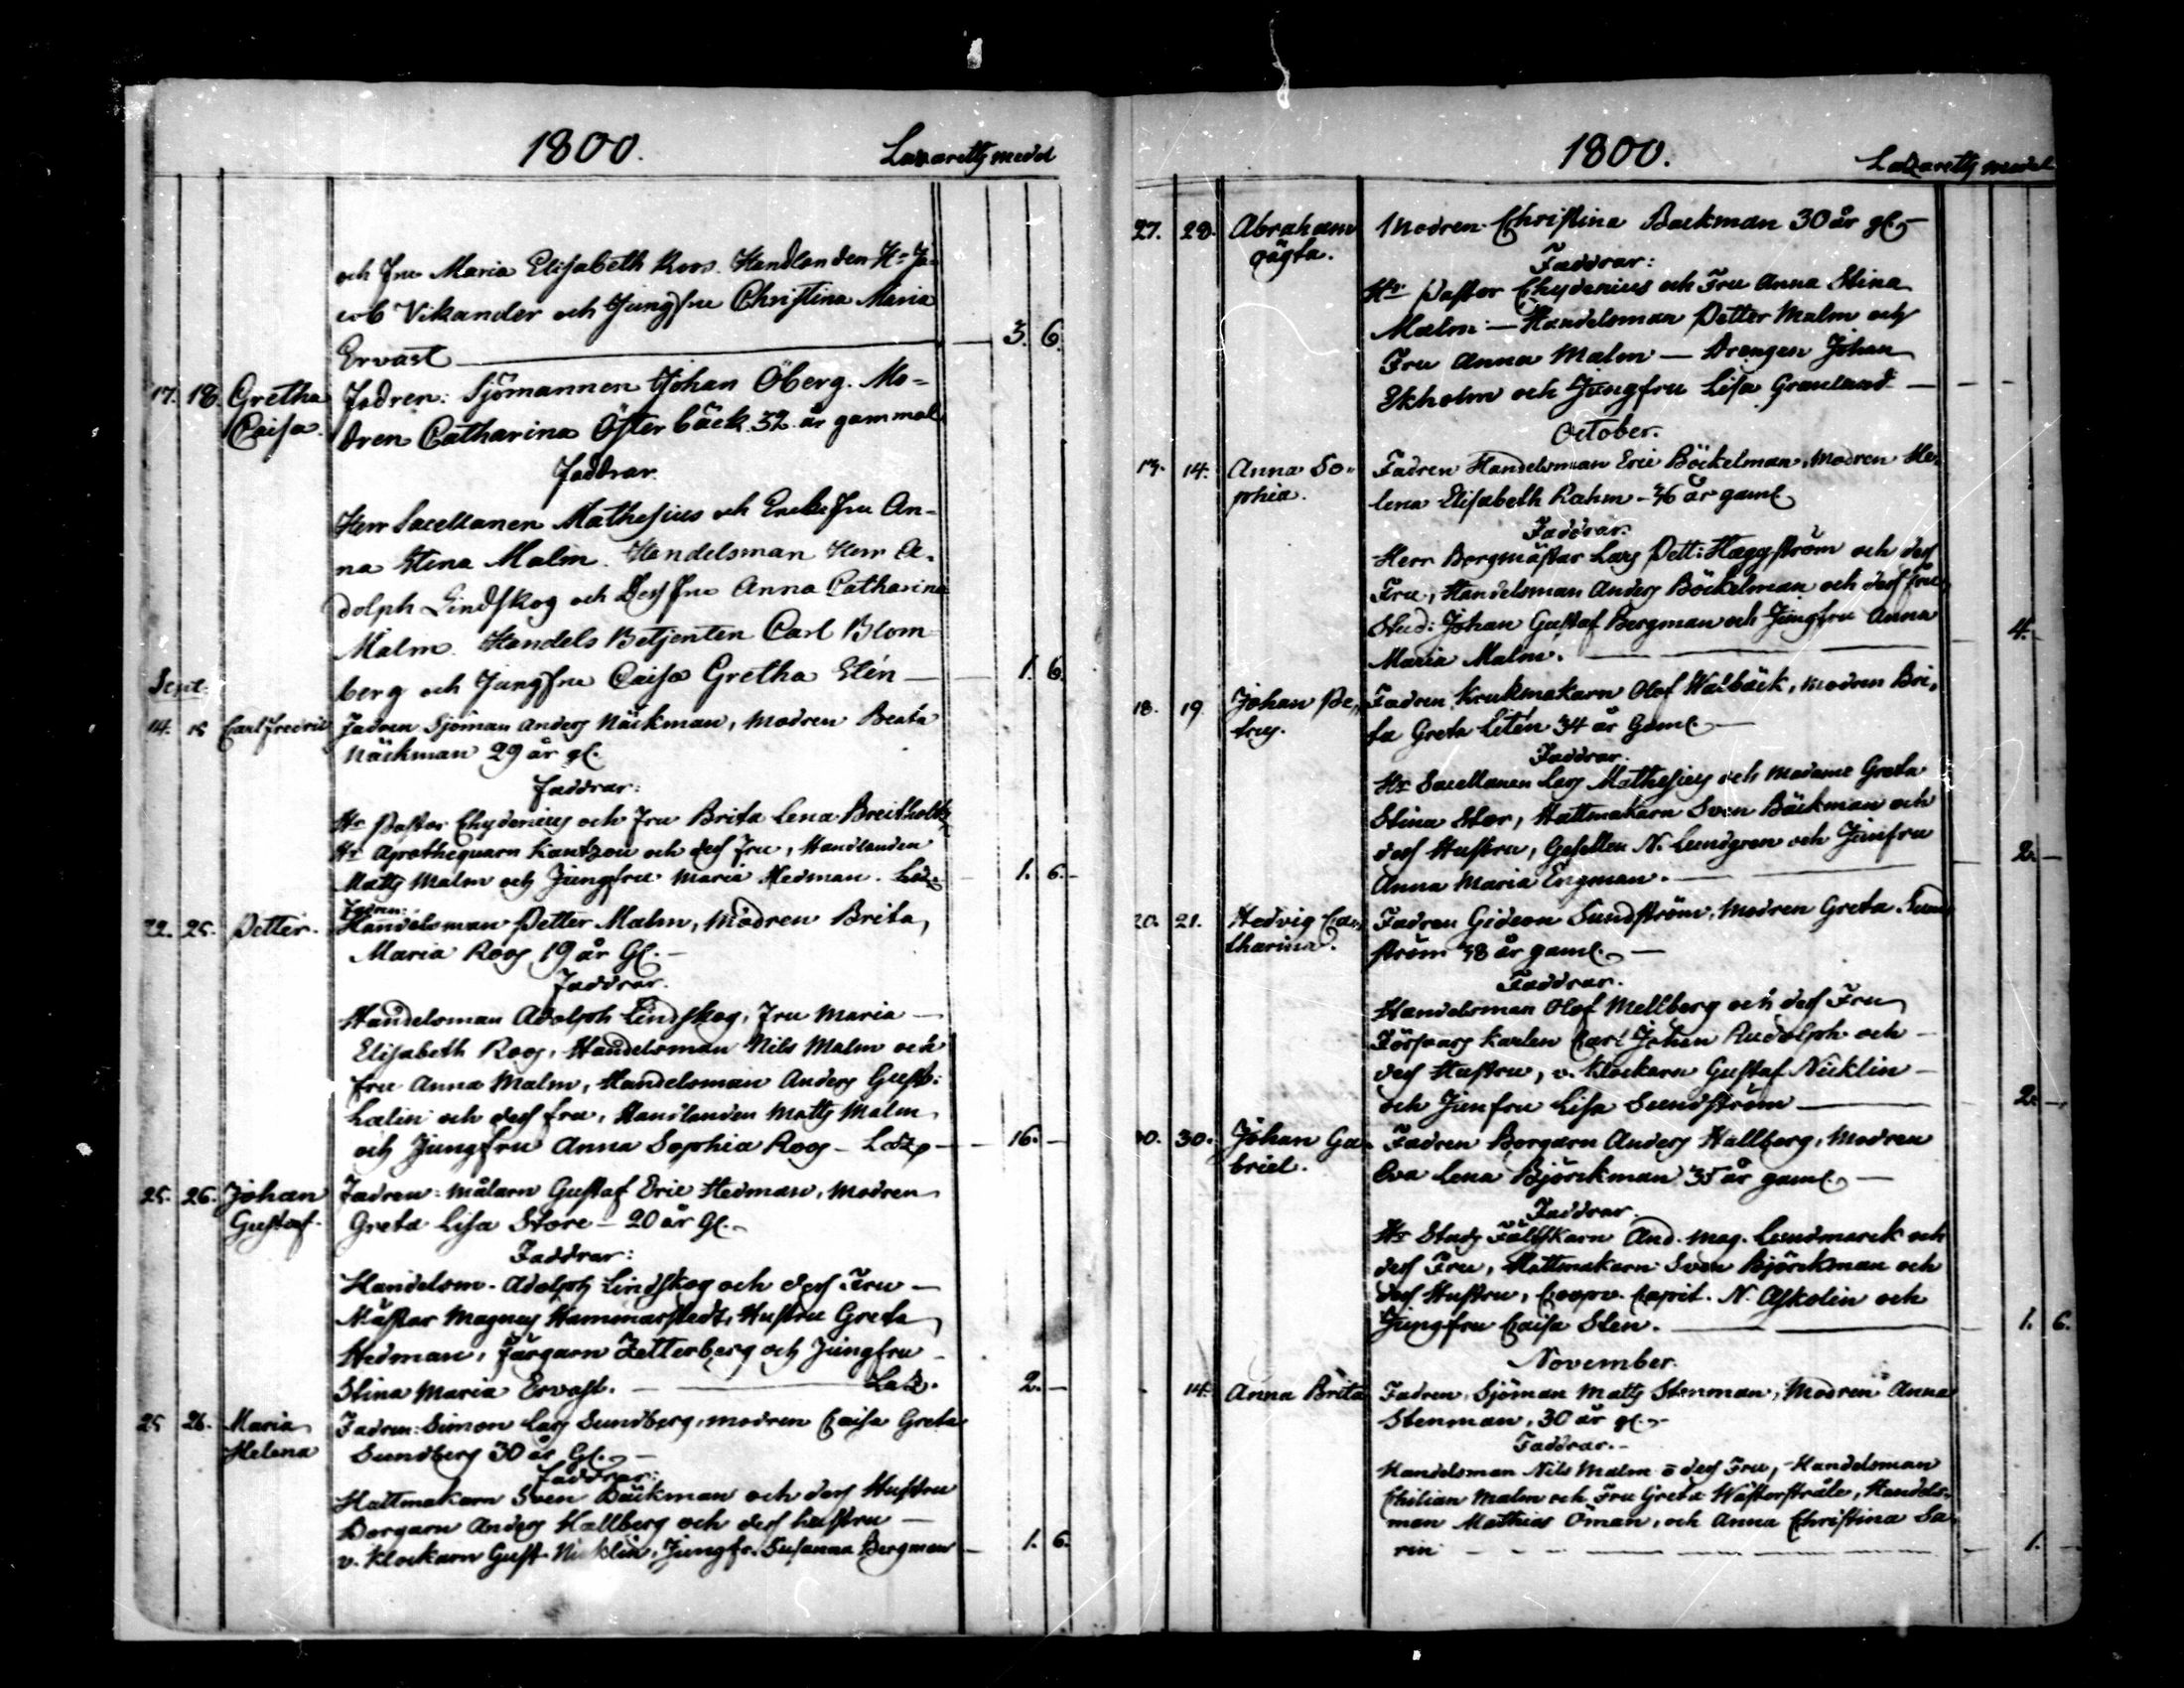 1800.
Lazaretts medel
och Fru Maria Elisabeth Roos. Handlanden Hr Ja-
cob Vikander och Jungfru Christina Maria
Ervast 3. 6.
17. 18. Gretha Fadren: Sjömannen Johan Öberg. Mo-
Caisa. dren Catharina Österbäck 32 år gammal
Faddrar.
Herr Sacellanen Mathesius och Enkefru An-
na Stina Malm. Handelsman Herr A-
dolph Lindskog och Dess fru Anna Catharina
Malm. Handels Betjenten Carl Blom-
berg och Jungfru Caisa Gretha Stén 1. 6.
Sept:
14. 15 Carl Fredric Fadren Sjöman Anders Näckman, Modren Beata
Näckman 29 år gl.
Faddrar:
Hr Pastor Chydenius och Fru Brita Lena Breitholtz
Hr Apothequarn Kantzou och dess Fru, Handlanden
Matts Malm och Jungfru Maria Hedman. Laz. 1. 6.
Fadren:
22. 25. Petter. Handelsman Petter Malm, Modren Brita
Maria Roos 19 år Gl.
Faddrar.
Handelsman Adolph Lindskog, Fru Maria
Elisabeth Roos, Handelsman Nils Malm och
fru Anna Malm, Handelsman Anders Gust:
Lalin och dess fru, Handlanden Matts Malm
och Jungfru Anna Sophia Roos - Laz. 16.
25. 26. Johan Fadren: Målarn Gustaf Eric Hedman, Modren
Gustaf. Greta Lisa Store - 20 år Gl.
Faddrar:
Handelsm. Adolph Lindskog och dess Fru
Mästar Magnus Hammarstedt, Hustru Greta
Hedman, Färgarn Zetterberg och Jungfru
Stina Maria Ervast. Laz. 2.
25 26. Maria Fadren: Simon Lars Sundberg, modren Caisa Greta
Helena Sundberg 30 år Gl.
Faddrar:
Hattmakarn Sven Bäckman och dess Hustru
Borgarn Anders Hallberg och dess hustru
v. Klockarn Gust. Nicklin, Jungfr. Susanna Bergman 1. 6.
1800.
Lazaretts medel
27. 28. Abraham Modren Christina Backman 30 år gl.
oägta. Faddrar:
Hr Pastor Chydenius och Fru Anna Stina
Malm - Handelsman Petter Malm och
Fru Anna Malm - Drengen Johan
Ekholm och Jungfru Lisa Granlund
October.
13. 14. Anna So- Fadren Handelsman Eric Böckelman, Modren He-
phia. lena Elisabeth Rahm - 36 år gaml
Faddrar.
Herr Borgmästar Lars Pett: Häggström och dess
Fru, Handelsman Anders Böckelman och dess fru,
Stud: Johan Gustaf Bergman och Jungfru Anna
Maria Malm. 4.
18. 19 Johan Pe- Fadren Krukmakarn Olof Walbäck, Modren Bri-
trus. ta Greta Litén 34 år Gaml.
Faddrar.
Hr Sacellanen Lars Mathesius och Madame Greta
Stina Stor, Hattmakarn Sven Bäckman och
dess Hustru, Gesellen N. Lundgren och Junfru
Anna Maria Engman. 2.
20. 21. Hedvig Ca- Fadren Gideon Sundström, Modren Greta Sund
tharina. ström 38 år gaml.
Faddrar.
Handelsman Olof Mellberg och dess Fru
Försvars Karlen Carl Johan Rudolph och
dess Hustru, v. Klockarn Gustaf Nicklin
och Junfru Lisa Sundström 2.
30. 30. Johan Ga- Fadren Borgarn Anders Hallberg, Modren
briel. Eva Lena Björckman 35 år gaml.
Faddrar.
Hr Stads Fältskärn And. Mag. Lundmarck och
dess Fru, Hattmakarn Sven Björckman och
dess Hustru, Coopv. Capit. N. Askolin och
Jungfru Caisa Sten. 1. 6.
November.
14. Anna Brita Fadren, Sjöman Matts Stenman, Modren Anna
Stenman, 30 år gl.
Faddrar.
Handelsman Nils Malm o dess Fru, Handelsman
Chilian Malm och Fru Greta Wästerstråle, Handels-
man Mathias Öman, och Anna Christina Sa-
rin 1.